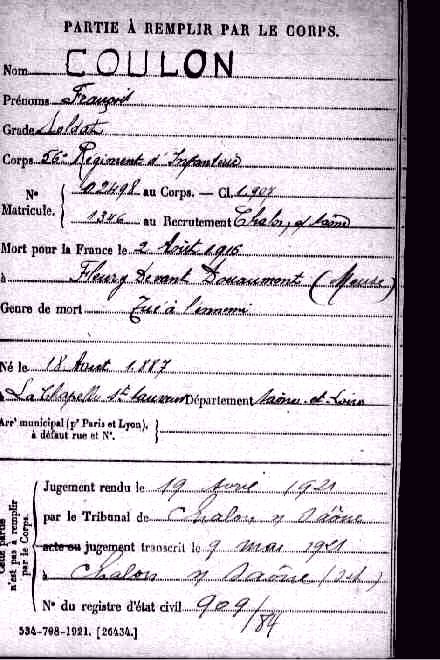 PARTIE À REMPLIR PAR LE CORPS.
Nom COULON
Prénoms François
Grade Soldat
Corps 56e Régiment d'Infanterie
No Matricule. { 02498 au Corps. — Cl. 1907
1346 au Recrutement Chalon s/ Saône
Mort pour la France le 2 Août 1916
à Fleury Devant Douaumont (Meuse)
Genre de mort Tué à l'ennemi
Né le 18 Aoust 1887
à La Chapelle St Sauveur Département Saône-et-Loire
Arrt municipal (pr Paris et Lyon), à défaut rue et No. }
Cette partie n'est pas à remplir par le Corps.
Jugement rendu le 19 Avril 1921
par le Tribunal de Chalon s/ Saône
acte ou jugement transcrit le 9 mai 1921
à Chalon s/ Saône
No du registre d'état civil 909/84
534-708-1921. [26434.]